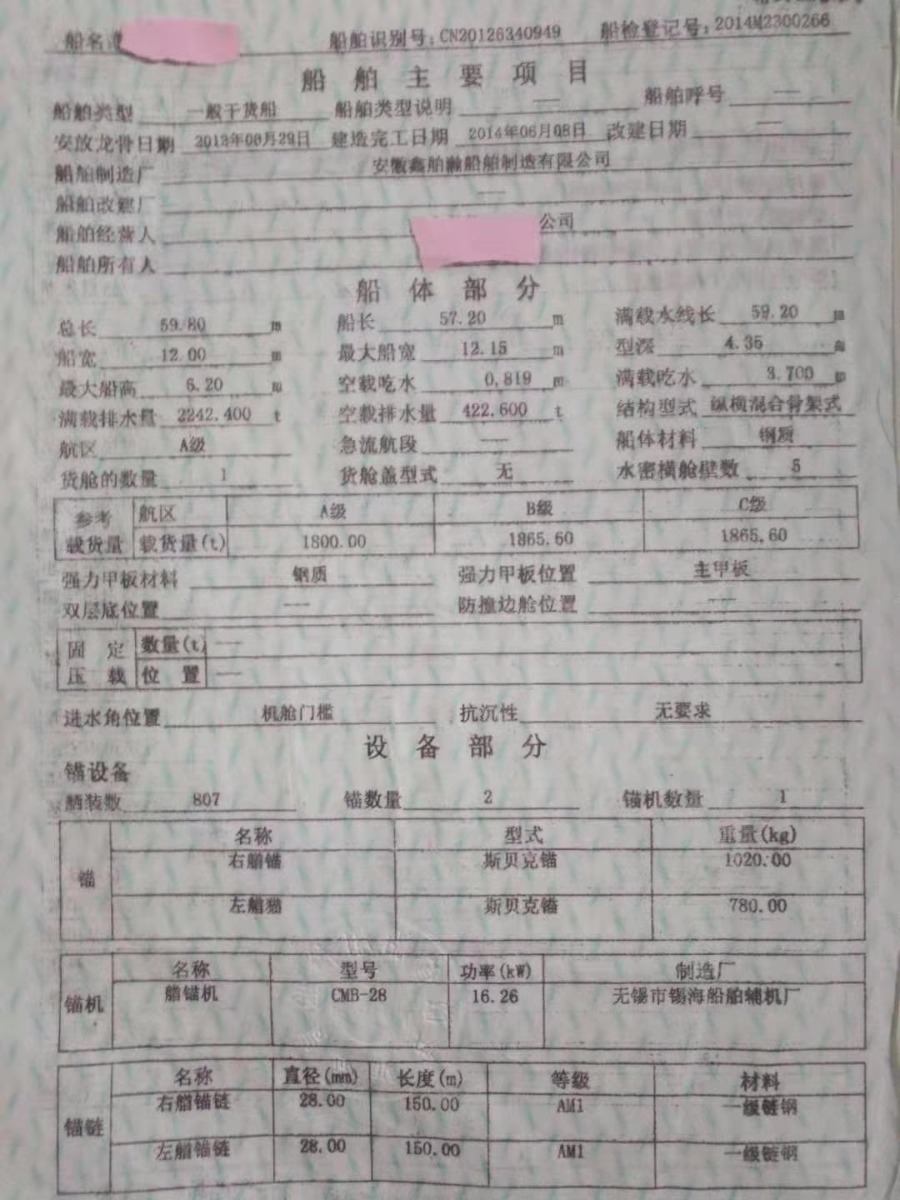 船名 船舶识别号:CN20126340949 船检登记号:2014M2300266
船舶主要项目
船舶类型 一般干货船 船舶类型说明 —— 船舶呼号 ——
安放龙骨日期 2013年08月29日 建造完工日期 2014年06月08日 改建日期 ——
船舶制造厂 安徽鑫舶瀚船舶制造有限公司
船舶改建厂 ——
船舶经营人 公司
船舶所有人
船体部分
总长 59.80 m 船长 57.20 m 满载水线长 59.20 m
船宽 12.00 m 最大船宽 12.15 m 型深 4.35 m
最大船高 6.20 m 空载吃水 0.819 m 满载吃水 3.700 m
满载排水量 2242.400 t 空载排水量 422.600 t 结构型式 纵横混合骨架式
航区 A级 急流航段 —— 船体材料 钢质
货舱的数量 1 货舱盖型式 无 水密横舱壁数 5
参考 航区 A级 B级 C级
载货量 载货量(t) 1800.00 1865.60 1865.60
强力甲板材料 钢质 强力甲板位置 主甲板
双层底位置 —— 防撞边舱位置 ——
固定 数量(t) ——
压载 位置 ——
进水角位置 机舱门槛 抗沉性 无要求
设备部分
锚设备
舾装数 807 锚数量 2 锚机数量 1
名称 型式 重量(kg)
右艏锚 斯贝克锚 1020.00
锚
左艏锚 斯贝克锚 780.00
名称 型号 功率(kW) 制造厂
锚机 艏锚机 CMB-28 16.26 无锡市锡海船舶辅机厂
名称 直径(mm) 长度(m) 等级 材料
右艏锚链 28.00 150.00 AM1 一级链钢
锚链
左艏锚链 28.00 150.00 AM1 一级链钢